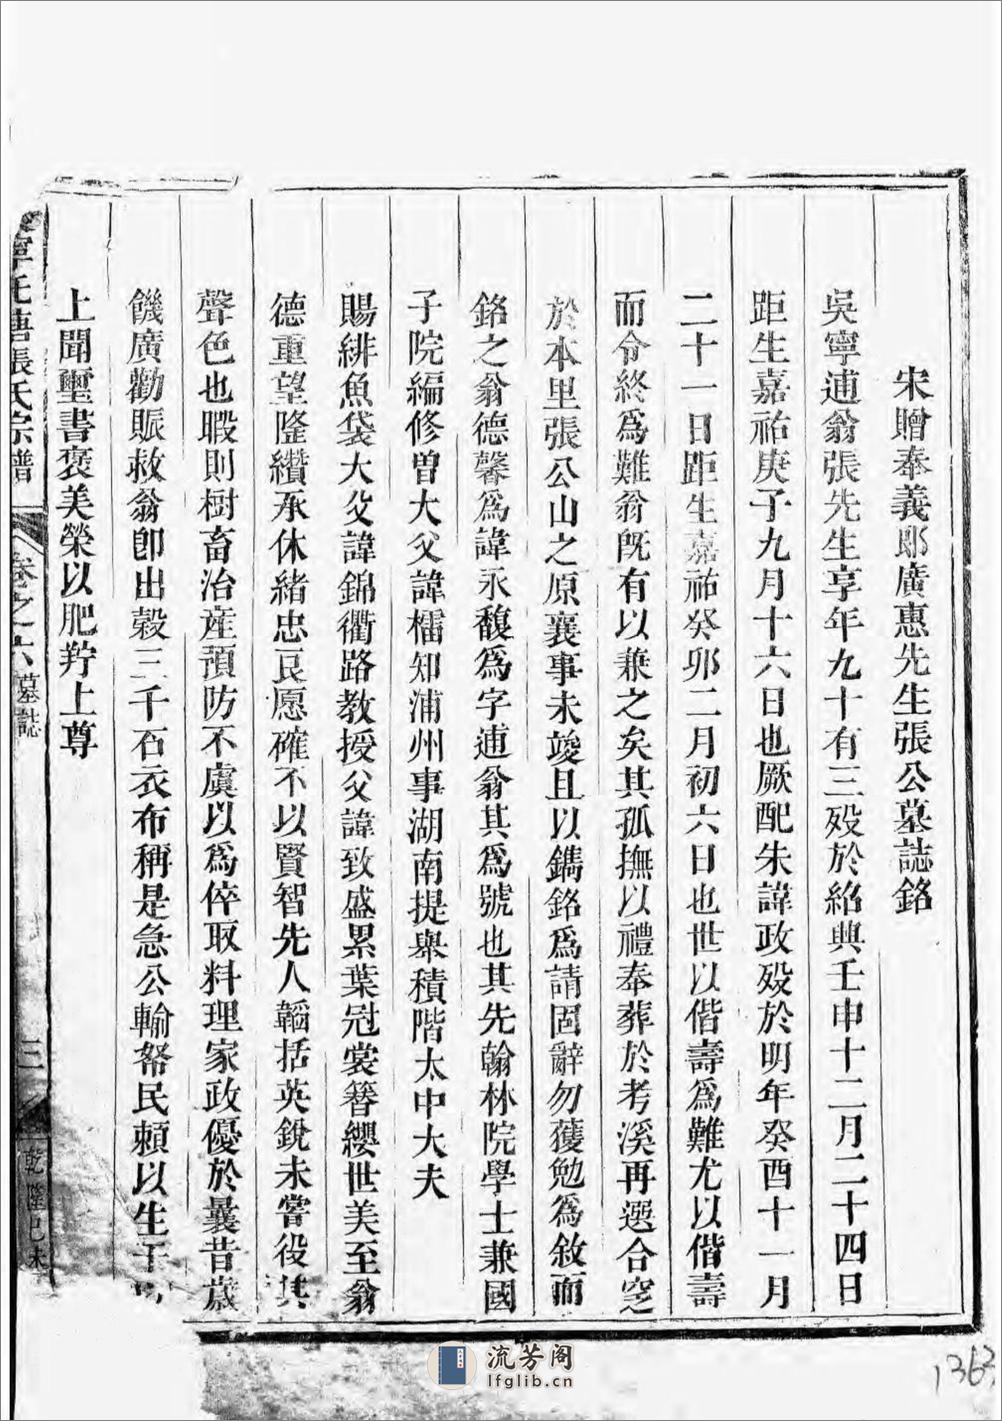 宋贈奉義郎廣惠先生張公墓誌銘
吳寧逋翁張先生享年九十有三歿於紹興壬申十二月二十四日
距生嘉祐庚子九月十六日也厥配朱諱政歿於明年癸酉十一月
二十一日距生嘉祐癸卯二月初六日也世以偕壽為難尤以偕壽
而令終為難翁旣有以兼之矣其孤撫以禮奉葬於考溪再選合窆
於本里張公山之原襄事未竣且以鐫銘為請固辭勿獲勉為敘而
銘之翁德馨為諱永馥為字逋翁其為號也其先翰林院學士兼國
子院編修曾大父諱櫺知浦州事湖南提舉積階太中大夫
賜緋魚袋大父諱錦衢路教授父諱致盛累葉冠裳簪纓世美至翁
德重望隆纘承休緒忠良愿確不以賢智先人韜括英銳未嘗役其
聲色也暇則樹畜治産預防不虞以為倅取料理家政優於曩昔歲
饑廣勸賑救翁卽出穀三千石衣布稱是急公輸帑民賴以生
上聞璽書褒美榮以肥羜上尊
寧托塘張氏宗譜
卷之六 墓誌
三
乾隆己未
流芳阁
lfglib.cn
1363